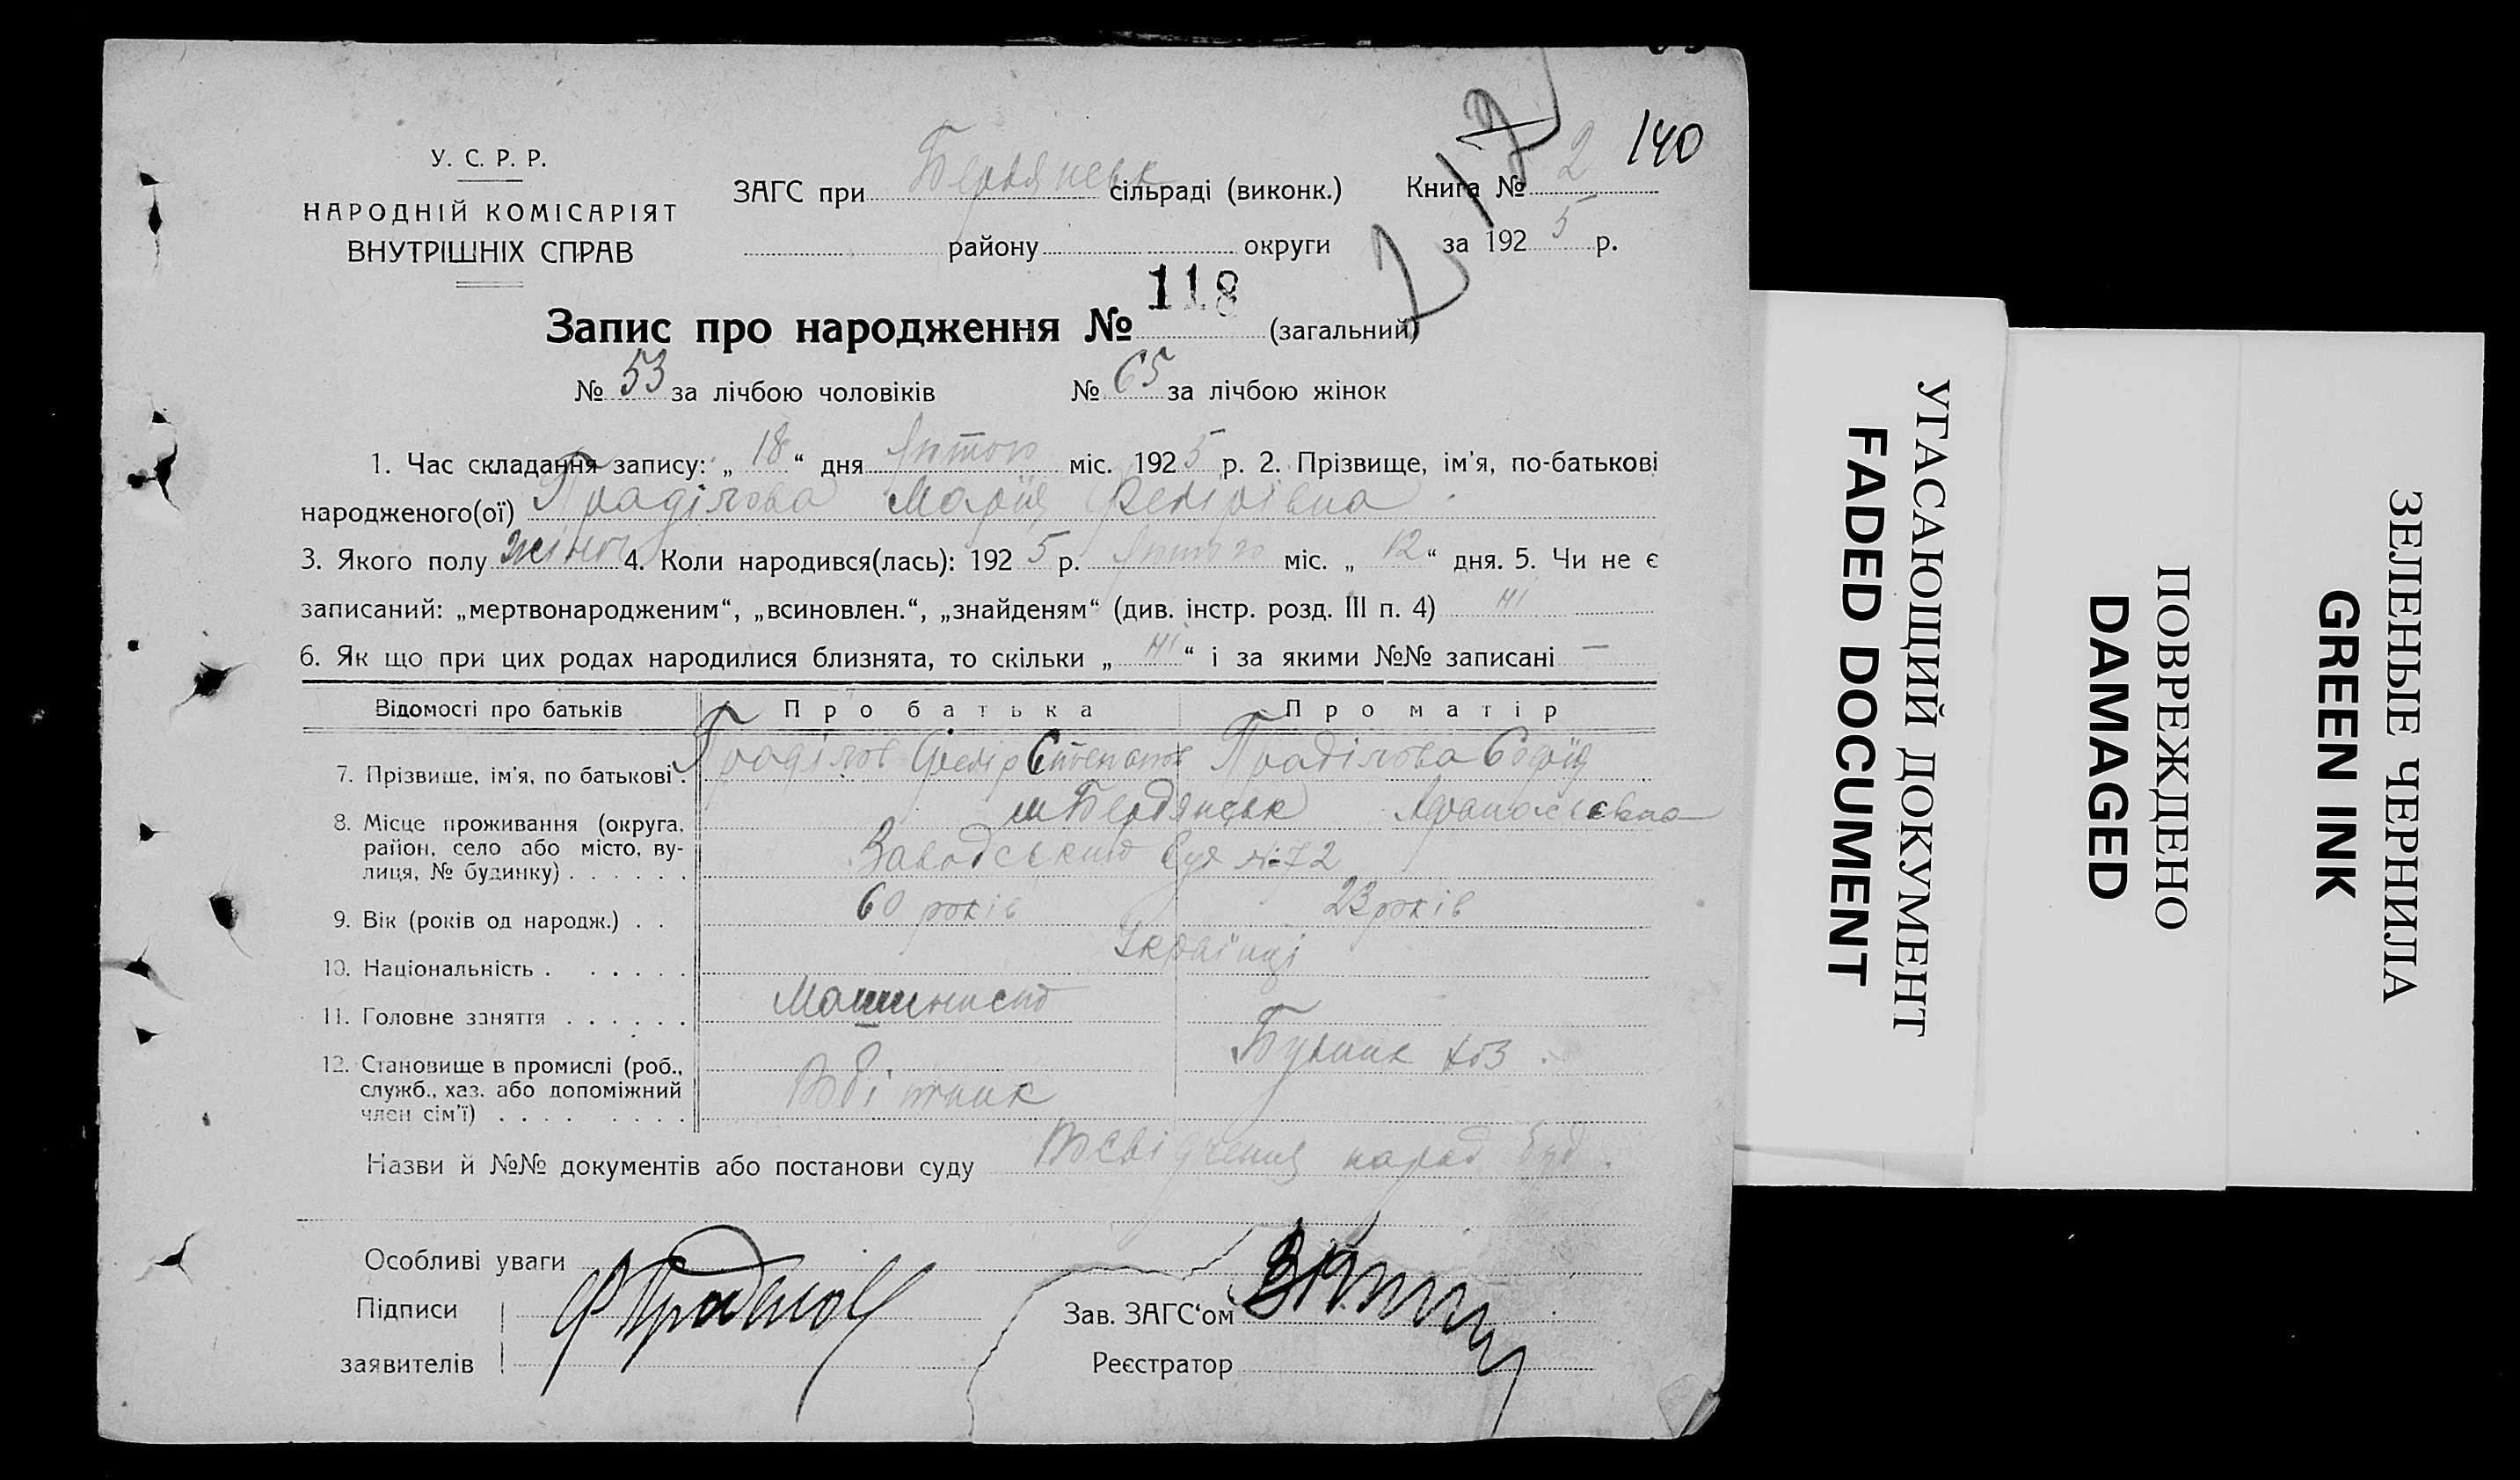 140
У. С. Р. Р.
НАРОДНІЙ КОМІСАРІЯТ
ВНУТРІШНІХ СПРАВ
ЗАГС при Бердянськ сільраді (виконк.) Книга № 2
району округи за 1925 р.
Запис про народження № 118 (загальний)
№ 53 за лічбою чоловіків № 65 за лічбою жінок
1. Час складання запису: „18“ дня лютого міс. 1925 р. 2. Прізвище, ім'я, по-батькові
народженого(ої) Праділова Марія Федірівна
3. Якого полу жіноч 4. Коли народився(лась): 1925 р. лютого міс. „12“ дня. 5. Чи не є
записаний: „мертвонародженим“, „всиновлен.“, „знайденям“ (див. інстр. розд. III п. 4) ні
6. Як що при цих родах народилися близнята, то скільки „ні“ і за якими №№ записані —
Відомості про батьків Про батька Про матір
7. Прізвище, ім'я, по батькові. Праділов Федір Степанов Праділова Софія
м Бердянськ
8. Місце проживання (округа, район, село або місто, вулиця, № будинку) . . . . . . Заводський вул № 72
9. Вік (років од народж.) . . 60 років 23 років
10. Національність . . . . . . Українці
11. Головне заняття . . . . . . Машинист
12. Становище в промислі (роб., служб., хаз. або допоміжний член сім'ї) . . . . . . . .
Назви й №№ документів або постанови суду
Особливі уваги
Підписи
заявителів
Зав. ЗАГС‘ом
Реєстратор
УГАСАЮЩИЙ ДОКУМЕНТ
FADED DOCUMENT
ПОВРЕЖДЕНО
DAMAGED
ЗЕЛЕНЫЕ ЧЕРНИЛА
GREEN INK